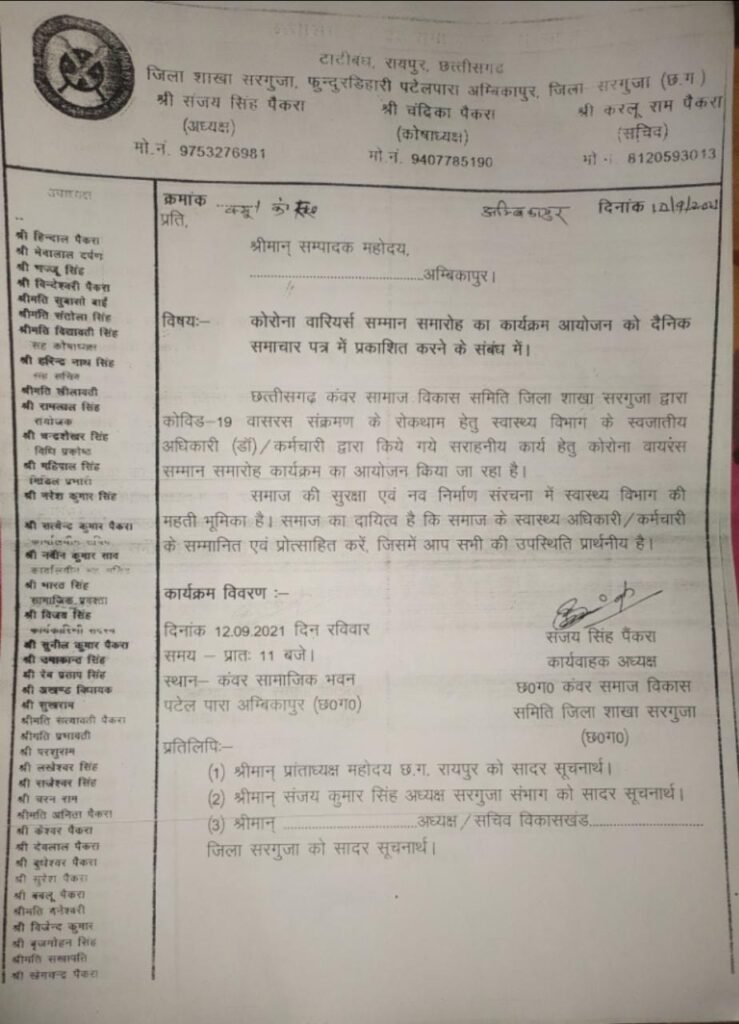 टाटीबंध, रायपुर, छत्तीसगढ़
जिला शाखा सरगुजा, फुन्दुरडिहारी पटेलपारा अम्बिकापुर, जिला- सरगुजा (छ.ग.)
श्री संजय सिंह पैंकरा श्री चंदिका पैकरा श्री करलू राम पैकरा
(अध्यक्ष) (कोषाध्यक्ष) (सचिव)
मो.नं. 9753276981 मो.नं. 9407785190 मो नं. 8120593013
उपाध्यक्ष
श्री हिन्दाल पैकरा
श्री मेवालाल दर्पण
श्री भज्जू सिंह
श्री विन्देश्वरी पैकरा
श्रीमति सुबासो बाई
श्रीमति संतोला सिंह
श्रीमति विद्यावती सिंह
सह कोषाध्यक्ष
श्री हरिन्द्र नाथ सिंह
सह सचिव
श्रीमती लीलावती
श्री रामलाल सिंह
श्री चन्द्रशेखर सिंह
विधि प्रकोष्ठ
श्री महिपाल सिंह
मिडिल प्रभारी
श्री नरेश कुमार सिंह
श्री सत्येन्द्र कुमार पैकरा
श्री नवीन कुमार साय
श्री भारत सिंह
सामाजिक प्रवक्ता
श्री विजय सिंह
कार्यकारिणी सदस्य
श्री सुनील कुमार पैकरा
श्री उमाकान्त सिंह
श्री देव प्रताप सिंह
श्री अखण्ड विधायक
श्री सुखराम
श्रीमति सत्यावती पैकरा
श्रीमति प्रभावती
श्री परशुराम
श्री लखेश्वर सिंह
श्री राजेश्वर सिंह
श्री चरन राम
श्रीमति अनिता पैकरा
श्री केश्वर पैकरा
श्री देवलाल पैकरा
श्री बुधेश्वर पैकरा
श्री सुरेश पैकरा
श्री बबलू पैकरा
श्रीमति धनेश्वरी
श्री विजेन्द कुमार
श्री बृजमोहन सिंह
श्रीमति सखापति
श्री खेमचन्द्र पैकरा
क्रमांक अम्बिकापुर दिनांक 12/9/2021
प्रति,
श्रीमान् सम्पादक महोदय,
..............................अम्बिकापुर।
विषयः– कोरोना वारियर्स सम्मान समारोह का कार्यक्रम आयोजन को दैनिक
समाचार पत्र में प्रकाशित करने के संबंध में।
छत्तीसगढ़ कंवर सामाज विकास समिति जिला शाखा सरगुजा द्वारा
कोविड-19 वासरस संक्रमण के रोकथाम हेतु स्वास्थ्य विभाग के स्वजातीय
अधिकारी (डॉ)/कर्मचारी द्वारा किये गये सराहनीय कार्य हेतु कोरोना वायरंस
सम्मान समारोह कार्यक्रम का आयोजन किया जा रहा है।
समाज की सुरक्षा एवं नव निर्माण संरचना में स्वास्थ्य विभाग की
महती भूमिका है। समाज का दायित्व है कि समाज के स्वास्थ्य अधिकारी/कर्मचारी
के सम्मानित एवं प्रोत्साहित करें, जिसमें आप सभी की उपस्थिति प्रार्थनीय है।
कार्यक्रम विवरण :–
दिनांक 12.09.2021 दिन रविवार
समय – प्रातः 11 बजे।
स्थान– कंवर सामाजिक भवन
पटेल पारा अम्बिकापुर (छ0ग0)
संजय सिंह पैंकरा
कार्यवाहक अध्यक्ष
छ0ग0 कंवर समाज विकास
समिति जिला शाखा सरगुजा
(छ0ग0)
प्रतिलिपिः–
(1) श्रीमान् प्रांताध्यक्ष महोदय छ.ग. रायपुर को सादर सूचनार्थ।
(2) श्रीमान् संजय कुमार सिंह अध्यक्ष सरगुजा संभाग को सादर सूचनार्थ।
(3) श्रीमान् ..............................अध्यक्ष/सचिव विकासखंड..............................
जिला सरगुजा को सादर सूचनार्थ।